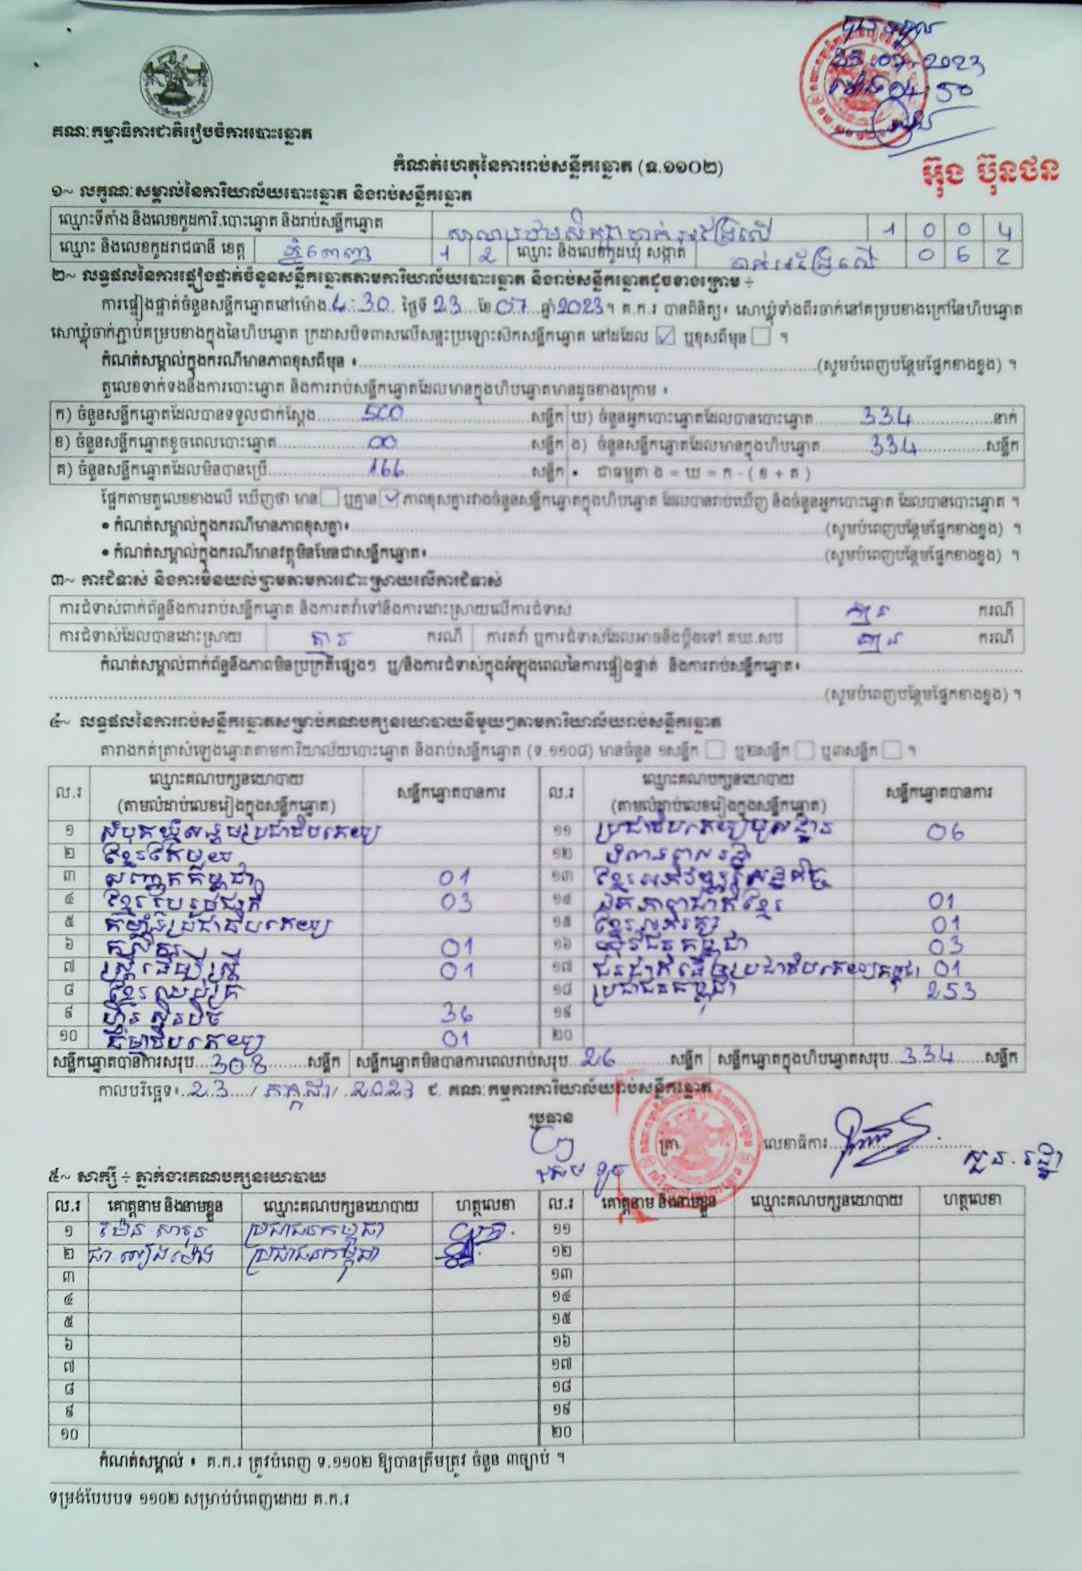 គណៈកម្មាធិការជាតិរៀបចំការបោះឆ្នោត
23.07.2023
04:50
កំណត់ហេតុនៃការរាប់សន្លឹកឆ្នោត (ទ.១១០២)
អ៊ុង ប៊ុនថន
១~ លក្ខណៈសម្គាល់នៃការិយាល័យបោះឆ្នោត និងរាប់សន្លឹកឆ្នោត
ឈ្មោះទីតាំង និងលេខកូដការិ.បោះឆ្នោត និងរាប់សន្លឹកឆ្នោត 1 0 0 4
ឈ្មោះ និងលេខកូដរាជធានី ខេត្ត ភ្នំពេញ 1 2 ឈ្មោះ និងលេខកូដឃុំ សង្កាត់ ចាក់អង្រែលើ 0 6 2
២~ លទ្ធផលនៃការផ្ទៀងផ្ទាត់ចំនួនសន្លឹកឆ្នោតតាមការិយាល័យបោះឆ្នោត និងរាប់សន្លឹកឆ្នោតដូចខាងក្រោម ÷
ការផ្ទៀងផ្ទាត់ចំនួនសន្លឹកឆ្នោតនៅម៉ោង 4:30 ថ្ងៃទី 23 ខែ 07 ឆ្នាំ 2023។ គ.ក.រ បានពិនិត្យ៖ សោឃ្លុំទាំងពីរចាក់នៅគម្របខាងក្រៅនៃហិបឆ្នោត
សោឃ្លុំចាក់ភ្ជាប់គម្របខាងក្នុងនៃហិបឆ្នោត ក្រដាសបិទពាសលើសន្ទះប្រឡោះស៊កសន្លឹកឆ្នោត នៅដដែល ☑ ឬខុសពីមុន ☐ ។
កំណត់សម្គាល់ក្នុងករណីមានភាពខុសពីមុន ៖ (សូមបំពេញបន្ថែមផ្នែកខាងខ្នង) ។
តួលេខទាក់ទងនឹងការបោះឆ្នោត និងការរាប់សន្លឹកឆ្នោតដែលមានក្នុងហិបឆ្នោតមានដូចខាងក្រោម ៖
ក) ចំនួនសន្លឹកឆ្នោតដែលបានទទួលជាក់ស្តែង 500 សន្លឹក ឃ) ចំនួនអ្នកបោះឆ្នោតដែលបានបោះឆ្នោត 334 នាក់
ខ) ចំនួនសន្លឹកឆ្នោតខូចពេលបោះឆ្នោត 00 សន្លឹក ង) ចំនួនសន្លឹកឆ្នោតដែលមានក្នុងហិបឆ្នោត 334 សន្លឹក
គ) ចំនួនសន្លឹកឆ្នោតដែលមិនបានប្រើ 166 សន្លឹក • ជាធម្មតា ង = ឃ = ក - ( ខ + គ )
ផ្អែកតាមតួលេខខាងលើ ឃើញថា មាន ☐ ឬគ្មាន ☑ ភាពខុសគ្នារវាងចំនួនសន្លឹកឆ្នោតក្នុងហិបឆ្នោត ដែលបានរាប់ឃើញ និងចំនួនអ្នកបោះឆ្នោត ដែលបានបោះឆ្នោត ។
• កំណត់សម្គាល់ក្នុងករណីមានភាពខុសគ្នា៖ (សូមបំពេញបន្ថែមផ្នែកខាងខ្នង) ។
• កំណត់សម្គាល់ក្នុងករណីមានវត្ថុមិនមែនជាសន្លឹកឆ្នោត៖ (សូមបំពេញបន្ថែមផ្នែកខាងខ្នង) ។
៣~ ការជំទាស់ និងការមិនយល់ព្រមតាមការដោះស្រាយលើការជំទាស់
ការជំទាស់ពាក់ព័ន្ធនឹងការរាប់សន្លឹកឆ្នោត និងការតវ៉ាទៅនឹងការដោះស្រាយលើការជំទាស់ គ្មាន ករណី
ការជំទាស់ដែលបានដោះស្រាយ គ្មាន ករណី ការតវ៉ា ឬការជំទាស់ដែលអាចនឹងប្តឹងទៅ គឃ.សប គ្មាន ករណី
កំណត់សម្គាល់ពាក់ព័ន្ធនឹងភាពមិនប្រក្រតីផ្សេងៗ ឬ/និងការជំទាស់ក្នុងអំឡុងពេលនៃការផ្ទៀងផ្ទាត់ និងការរាប់សន្លឹកឆ្នោត៖
(សូមបំពេញបន្ថែមផ្នែកខាងខ្នង) ។
៤~ លទ្ធផលនៃការរាប់សន្លឹកឆ្នោតសម្រាប់គណបក្សនយោបាយនីមួយៗតាមការិយាល័យរាប់សន្លឹកឆ្នោត
តារាងកត់ត្រាសំឡេងឆ្នោតតាមការិយាល័យបោះឆ្នោត និងរាប់សន្លឹកឆ្នោត (ទ.១១០៨) មានចំនួន ១សន្លឹក ☐ ឬ២សន្លឹក ☐ ឬ៣សន្លឹក ☐ ។
ល.រ ឈ្មោះគណបក្សនយោបាយ (តាមលំដាប់លេខរៀងក្នុងសន្លឹកឆ្នោត) សន្លឹកឆ្នោតបានការ ល.រ ឈ្មោះគណបក្សនយោបាយ (តាមលំដាប់លេខរៀងក្នុងសន្លឹកឆ្នោត) សន្លឹកឆ្នោតបានការ
១ សំបុកឃ្មុំសង្គមប្រជាធិបតេយ្យ ១១ ប្រជាធិបតេយ្យមូលដ្ឋាន 06
២ ខ្មែរតែមួយ ១២
៣ 01 ១៣ ខ្មែរអភិវឌ្ឍន៍សេដ្ឋកិច្ច
៤ ខ្មែររួបរួមជាតិ 03 ១៤ ឯកភាពជាតិខ្មែរ 01
៥ កម្លាំងប្រជាធិបតេយ្យ ១៥ ខ្មែរអភិរក្ស 01
៦ កសិករ 01 ១៦ យុវជនកម្ពុជា 03
៧ ស្ត្រីដើម្បីស្ត្រី 01 ១៧ ជនជាតិដើមប្រជាធិបតេយ្យកម្ពុជា 01
៨ ខ្មែរឈប់ក្រ ១៨ ប្រជាជនកម្ពុជា 253
៩ ហ្វ៊ុនស៊ិនប៉ិច 36 ១៩
១០ ធម្មាធិបតេយ្យ 01 ២០
សន្លឹកឆ្នោតបានការសរុប 308 សន្លឹក សន្លឹកឆ្នោតមិនបានការពេលរាប់សរុប 26 សន្លឹក សន្លឹកឆ្នោតក្នុងហិបឆ្នោតសរុប 334 សន្លឹក
កាលបរិច្ឆេទ៖ 23 / កក្កដា / 2023 ៩. គណៈកម្មការការិយាល័យរាប់សន្លឹកឆ្នោត
ប្រធាន ត្រា លេខាធិការ
៥~ សាក្សី ÷ ភ្នាក់ងារគណបក្សនយោបាយ
ល.រ គោត្តនាម និងនាមខ្លួន ឈ្មោះគណបក្សនយោបាយ ហត្ថលេខា ល.រ គោត្តនាម និងនាមខ្លួន ឈ្មោះគណបក្សនយោបាយ ហត្ថលេខា
១ ប្រជាជនកម្ពុជា ១១
២ ប្រជាជនកម្ពុជា ១២
៣ ១៣
៤ ១៤
៥ ១៥
៦ ១៦
៧ ១៧
៨ ១៨
៩ ១៩
១០ ២០
កំណត់សម្គាល់ ៖ គ.ក.រ ត្រូវបំពេញ ទ.១១០២ ឱ្យបានត្រឹមត្រូវ ចំនួន ៣ច្បាប់ ។
ទម្រង់បែបបទ ១១០២ សម្រាប់បំពេញដោយ គ.ក.រ